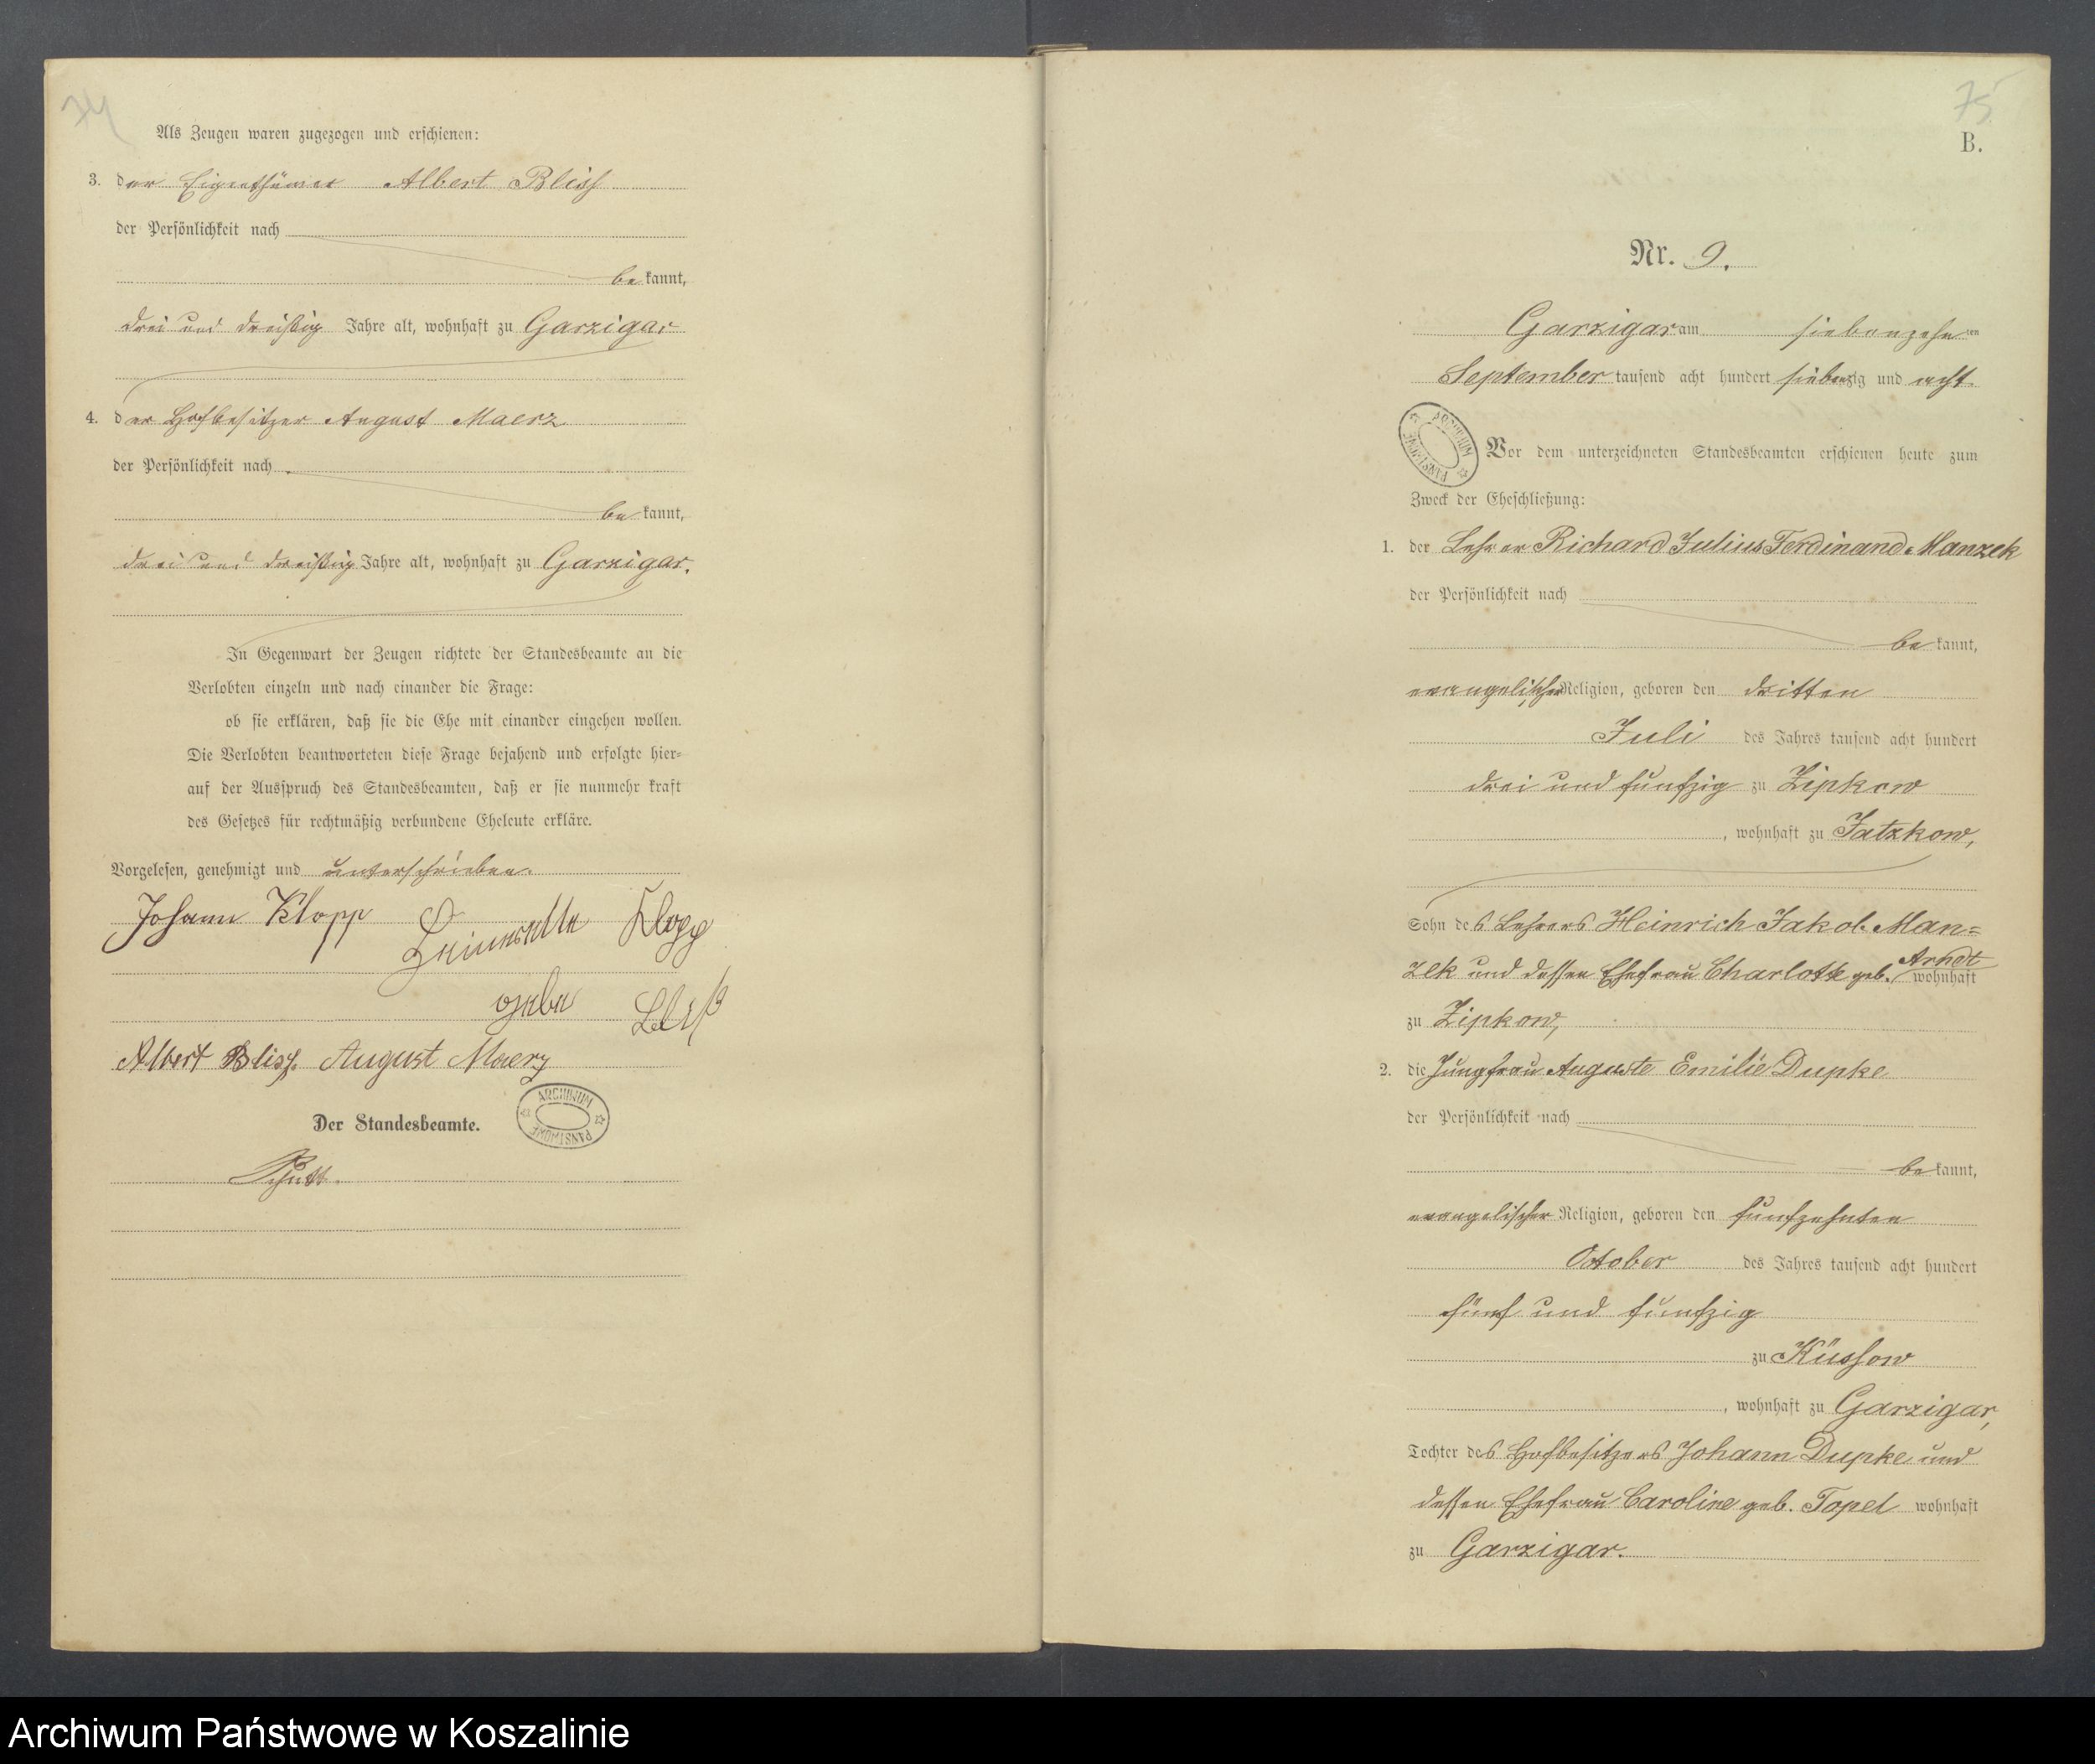 74
Als Zeugen waren zugezogen und erschienen:
3. der Eigenthümer Albert Bliss
der Persönlichkeit nach
bekannt,
drei und dreißig Jahre alt, wohnhaft zu Garzigar
4. der Hofbesitzer August Maerz
der Persönlichkeit nach
bekannt,
drei und dreißig Jahre alt, wohnhaft zu Garzigar.
In Gegenwart der Zeugen richtete der Standesbeamte an die
Verlobten einzeln und nach einander die Frage:
ob sie erklären, daß sie die Ehe mit einander eingehen wollen.
Die Verlobten beantworteten diese Frage bejahend und erfolgte hier=
auf der Ausspruch des Standesbeamten, daß er sie nunmehr kraft
des Gesetzes für rechtmäßig verbundene Eheleute erkläre.
Vorgelesen, genehmigt und unterschrieben.
Johann Klopp Klopp
Albert Bliss. August Maerz
Der Standesbeamte.
ARCHIWUM PAŃSTWOWE
75
B.
Nr. 9.
Garzigar am siebenzehnten
September tausend acht hundert siebenzig und acht
ARCHIWUM PAŃSTWOWE
Vor dem unterzeichneten Standesbeamten erschienen heute zum
Zweck der Eheschließung:
1. der Lehrer Richard Julius Ferdinand Manzek
der Persönlichkeit nach
bekannt,
evangelischer Religion, geboren den dritten
Juli des Jahres tausend acht hundert
drei und funfzig zu Zipkow
, wohnhaft zu Jatzkow,
Sohn des Lehrers Heinrich Jakob Man=
zek und dessen Ehefrau Charlotte geb. Arndt wohnhaft
zu Zipkow,
2. die Jungfrau Auguste Emilie Dupke
der Persönlichkeit nach
bekannt,
evangelischer Religion, geboren den funfzehnten
October des Jahres tausend acht hundert
fünf und funfzig
zu Küssow
, wohnhaft zu Garzigar,
Tochter des Hofbesitzers Johann Dupke und
dessen Ehefrau Caroline geb. Topel wohnhaft
zu Garzigar.
Archiwum Państwowe w Koszalinie